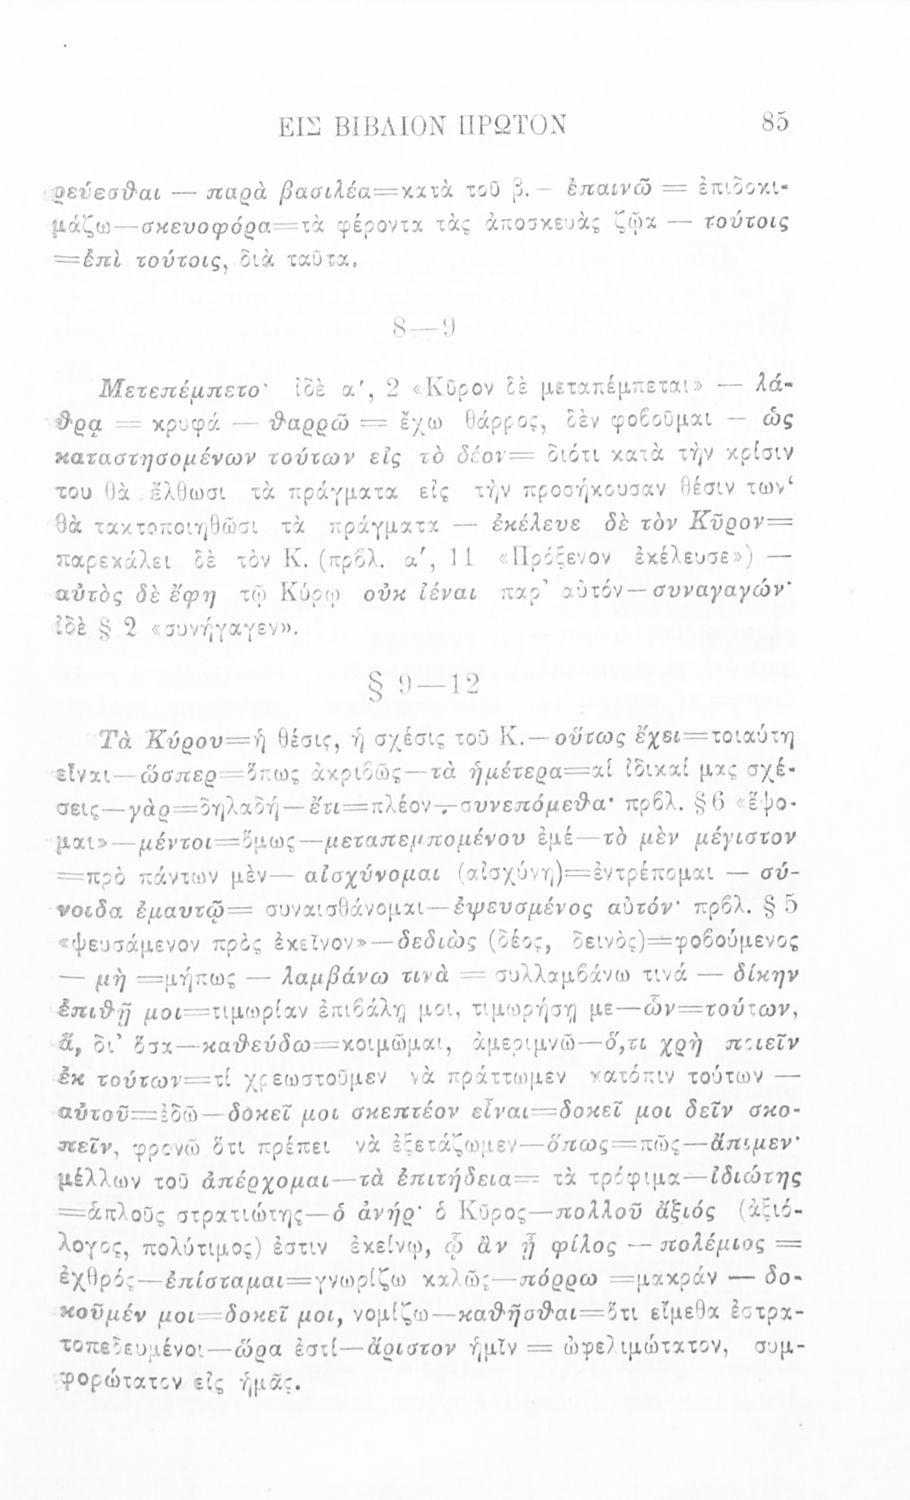 ΕΙΣ ΒΙΒΛΙΟΝ ΠΡΩΤΟΝ 85
ρεύεσθαι — παρὰ βασιλέα=κατὰ τοῦ β.— ἐπαινῶ = ἐπιδοκι-
μάζω—σκευοφόρα=τὰ φέροντα τὰς ἀποσκευὰς ζῷα — τούτοις
=ἐπὶ τούτοις, διὰ ταῦτα.
8—9
Μετεπέμπετο· ἰδὲ α', 2 «Κῦρον δὲ μεταπέμπεται» — λά-
θρᾳ = κρυφά — θαρρῶ = ἔχω θάρρος, δὲν φοβοῦμαι — ὡς
καταστησομένων τούτων εἰς τὸ δέον= διότι κατὰ τὴν κρίσιν
του θὰ ἔλθωσι τὰ πράγματα εἰς τὴν προσήκουσαν θέσιν των·
θὰ τακτοποιηθῶσι τὰ πράγματα — ἐκέλευε δὲ τὸν Κῦρον=
παρεκάλει δὲ τὸν Κ. (πρβλ. α', 11 «Πρόξενον ἐκέλευσε») —
αὐτὸς δὲ ἔφη τῷ Κύρῳ οὐκ ἰέναι παρ' αὐτόν—συναγαγών·
ἰδὲ § 2 «συνήγαγεν».
§ 9—12
Τὰ Κύρου=ἡ θέσις, ἡ σχέσις τοῦ Κ.—οὕτως ἔχει=τοιαύτη
εἶναι—ὥσπερ=ὅπως ἀκριβῶς—τὰ ἡμέτερα=αἱ ἰδικαί μας σχέ-
σεις—γὰρ=δηλαδή—ἔτι=πλέον—συνεπόμεθα· πρβλ. § 6 «ἕψο-
μαι»—μέντοι=ὅμως—μεταπεμπομένου ἐμέ—τὸ μὲν μέγιστον
=πρὸ πάντων μὲν— αἰσχύνομαι (αἰσχύνη)=ἐντρέπομαι — σύ-
νοιδα ἐμαυτῷ= συναισθάνομαι—ἐψευσμένος αὐτόν· πρβλ. § 5
«ψευσάμενον πρὸς ἐκεῖνον»—δεδιὼς (δέος, δεινὸς)=φοβούμενος
— μὴ =μήπως — λαμβάνω τινὰ = συλλαμβάνω τινά — δίκην
ἐπιθῇ μοι=τιμωρίαν ἐπιβάλῃ μοι, τιμωρήσῃ με—ὧν=τούτων,
ἅ, δι' ὅσα—καθεύδω=κοιμῶμαι, ἀμεριμνῶ—ὅ,τι χρὴ ποιεῖν
ἐκ τούτων=τί χρεωστοῦμεν νὰ πράττωμεν κατόπιν τούτων —
αὐτοῦ=ἐδῶ—δοκεῖ μοι σκεπτέον εἶναι=δοκεῖ μοι δεῖν σκο-
πεῖν, φρονῶ ὅτι πρέπει νὰ ἐξετάζωμεν—ὅπως=πῶς—ἄπιμεν·
μέλλων τοῦ ἀπέρχομαι—τὰ ἐπιτήδεια= τὰ τρόφιμα—ἰδιώτης
=ἁπλοῦς στρατιώτης—ὁ ἀνήρ· ὁ Κῦρος—πολλοῦ ἄξιός (ἀξιό-
λογος, πολύτιμος) ἐστιν ἐκείνῳ, ᾧ ἂν ᾖ φίλος — πολέμιος =
ἐχθρός—ἐπίσταμαι=γνωρίζω καλῶς—πόρρω =μακράν — δο-
κοῦμέν μοι=δοκεῖ μοι, νομίζω—καθῆσθαι=ὅτι εἴμεθα ἐστρα-
τοπεδευμένοι—ὥρα ἐστί—ἄριστον ἡμῖν = ὠφελιμώτατον, συμ-
φορώτατον εἰς ἡμᾶς.